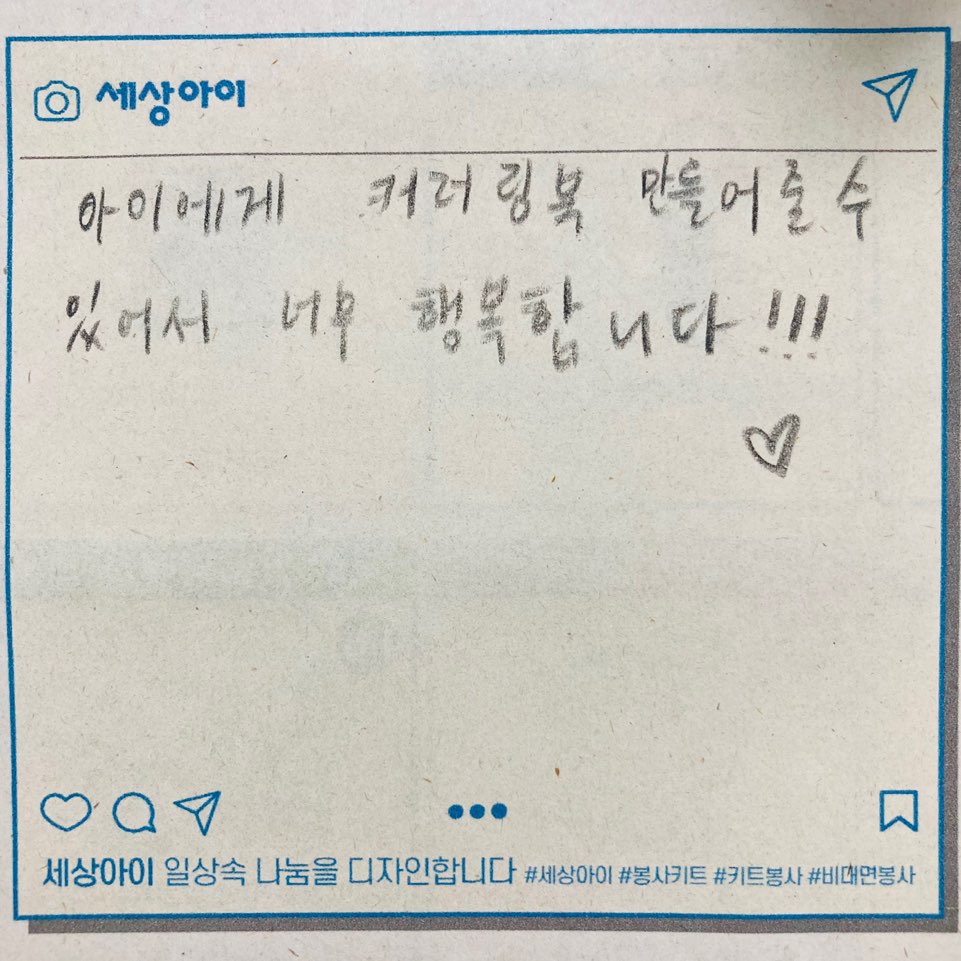 세상아이
아이에게 커러링북 만들어줄수
있어서 너무 행복합니다!!!
세상아이 일상속 나눔을 디자인합니다 #세상아이 #봉사키트 #키트봉사 #비대면봉사